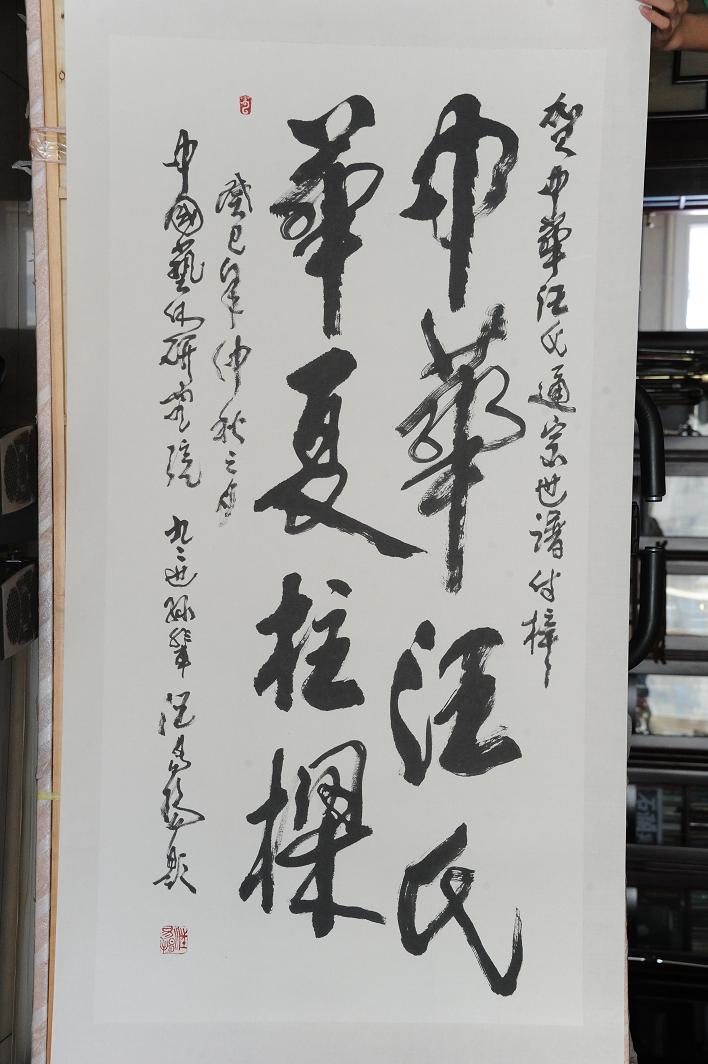 賀中華汪氏通宗世譜付梓
中華汪氏
華夏柱樑
癸巳年仲秋之月
中國藝術研究院 九二世孫輩 汪易揚題